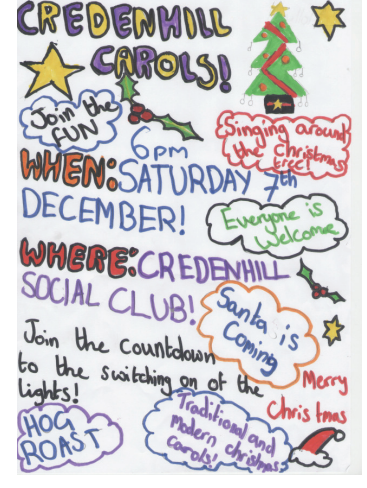 CREDENHILL
CAROLS!
Join the
FUN
Singing around
the Christmas
tree!
6pm
WHEN: SATURDAY 7th
DECEMBER!
Everyone is
Welcome
WHERE: CREDENHILL
SOCIAL CLUB!
Santa is
Coming
Join the countdown
to the switching on of the
lights!
Merry
Christmas
HOG
ROAST
Traditional and
Modern christmas
Carols!